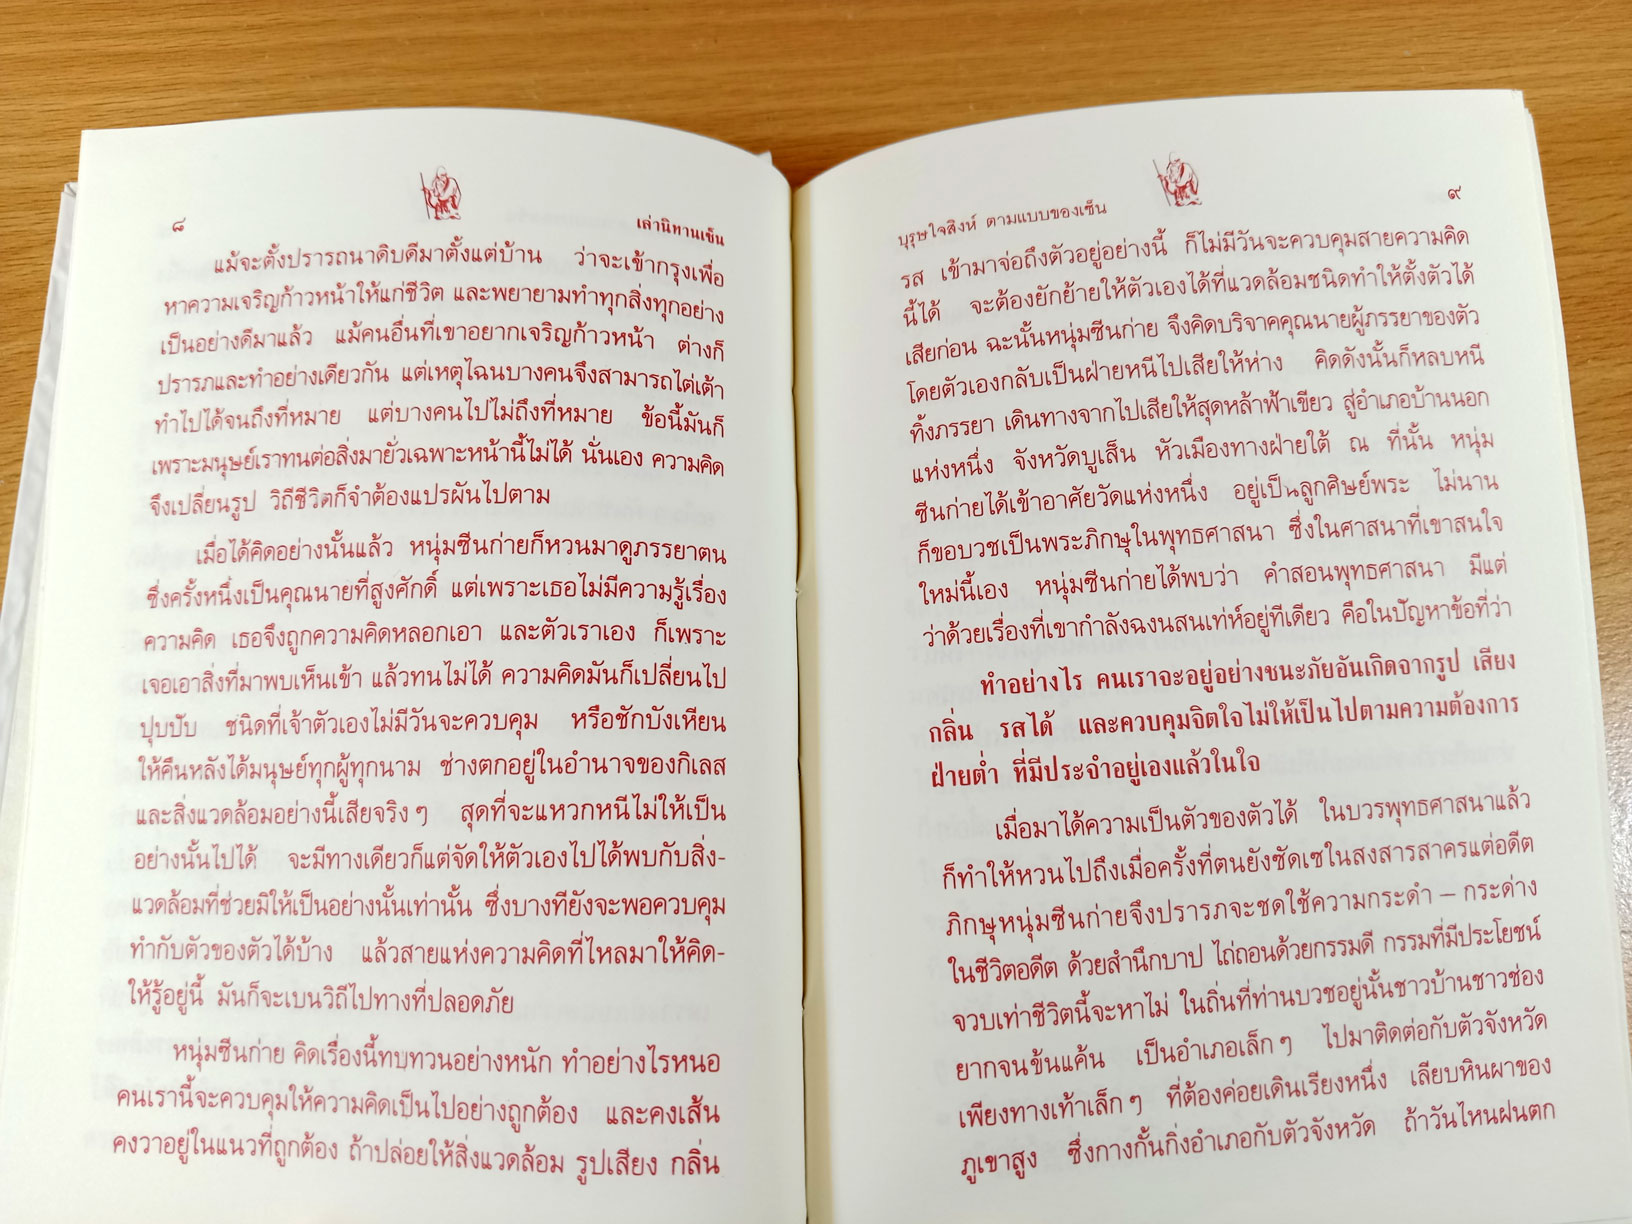 ๘
เล่านิทานเซ็น
แม้จะตั้งปรารถนาดิบดีมาตั้งแต่บ้าน ว่าจะเข้ากรุงเพื่อ
หาความเจริญก้าวหน้าให้แก่ชีวิต และพยายามทำทุกสิ่งทุกอย่าง
เป็นอย่างดีมาแล้ว แม้คนอื่นที่เขาอยากเจริญก้าวหน้า ต่างก็
ปรารภและทำอย่างเดียวกัน แต่เหตุไฉนบางคนจึงสามารถไต่เต้า
ทำไปได้จนถึงที่หมาย แต่บางคนไปไม่ถึงที่หมาย ข้อนี้มันก็
เพราะมนุษย์เราทนต่อสิ่งมายั่วเฉพาะหน้านี้ไม่ได้ นั่นเอง ความคิด
จึงเปลี่ยนรูป วิถีชีวิตก็จำต้องแปรผันไปตาม
เมื่อได้คิดอย่างนั้นแล้ว หนุ่มซีนก่ายก็หวนมาดูภรรยาตน
ซึ่งครั้งหนึ่งเป็นคุณนายที่สูงศักดิ์ แต่เพราะเธอไม่มีความรู้เรื่อง
ความคิด เธอจึงถูกความคิดหลอกเอา และตัวเราเอง ก็เพราะ
เจอเอาสิ่งที่มาพบเห็นเข้า แล้วทนไม่ได้ ความคิดมันก็เปลี่ยนไป
ปุบปับ ชนิดที่เจ้าตัวเองไม่มีวันจะควบคุม หรือชักบังเหียน
ให้คืนหลังได้มนุษย์ทุกผู้ทุกนาม ช่างตกอยู่ในอำนาจของกิเลส
และสิ่งแวดล้อมอย่างนี้เสียจริงๆ สุดที่จะแหวกหนีไม่ให้เป็น
อย่างนั้นไปได้ จะมีทางเดียวก็แต่จัดให้ตัวเองไปได้พบกับสิ่ง-
แวดล้อมที่ช่วยมิให้เป็นอย่างนั้นเท่านั้น ซึ่งบางทียังจะพอควบคุม
ทำกับตัวของตัวได้บ้าง แล้วสายแห่งความคิดที่ไหลมาให้คิด-
ให้รู้อยู่นี้ มันก็จะเบนวิถีไปทางที่ปลอดภัย
หนุ่มซีนก่าย คิดเรื่องนี้ทบทวนอย่างหนัก ทำอย่างไรหนอ
คนเรานี้จะควบคุมให้ความคิดเป็นไปอย่างถูกต้อง และคงเส้น
คงวาอยู่ในแนวที่ถูกต้อง ถ้าปล่อยให้สิ่งแวดล้อม รูปเสียง กลิ่น
บุรุษใจสิงห์ ตามแบบของเซ็น
๙
รส เข้ามาจ่อถึงตัวอยู่อย่างนี้ ก็ไม่มีวันจะควบคุมสายความคิด
นี้ได้ จะต้องยักย้ายให้ตัวเองได้ที่แวดล้อมชนิดทำให้ตั้งตัวได้
เสียก่อน ฉะนั้นหนุ่มซีนก่าย จึงคิดบริจาคคุณนายผู้ภรรยาของตัว
โดยตัวเองกลับเป็นฝ่ายหนีไปเสียให้ห่าง คิดดังนั้นก็หลบหนี
ทิ้งภรรยา เดินทางจากไปเสียให้สุดหล้าฟ้าเขียว สู่อำเภอบ้านนอก
แห่งหนึ่ง จังหวัดบูเส็น หัวเมืองทางฝ่ายใต้ ณ ที่นั้น หนุ่ม
ซีนก่ายได้เข้าอาศัยวัดแห่งหนึ่ง อยู่เป็นลูกศิษย์พระ ไม่นาน
ก็ขอบวชเป็นพระภิกษุในพุทธศาสนา ซึ่งในศาสนาที่เขาสนใจ
ใหม่นี้เอง หนุ่มซีนก่ายได้พบว่า คำสอนพุทธศาสนา มีแต่
ว่าด้วยเรื่องที่เขากำลังฉงนสนเท่ห์อยู่ทีเดียว คือในปัญหาข้อที่ว่า
ทำอย่างไร คนเราจะอยู่อย่างชนะภัยอันเกิดจากรูป เสียง
กลิ่น รสได้ และควบคุมจิตใจไม่ให้เป็นไปตามความต้องการ
ฝ่ายต่ำ ที่มีประจำอยู่เองแล้วในใจ
เมื่อมาได้ความเป็นตัวของตัวได้ ในบวรพุทธศาสนาแล้ว
ก็ทำให้หวนไปถึงเมื่อครั้งที่ตนยังซัดเซในสงสารสาครแต่อดีต
ภิกษุหนุ่มซีนก่ายจึงปรารภจะชดใช้ความกระดำ – กระด่าง
ในชีวิตอดีต ด้วยสำนึกบาป ไถ่ถอนด้วยกรรมดี กรรมที่มีประโยชน์
จวบเท่าชีวิตนี้จะหาไม่ ในถิ่นที่ท่านบวชอยู่นั้นชาวบ้านชาวช่อง
ยากจนข้นแค้น เป็นอำเภอเล็กๆ ไปมาติดต่อกับตัวจังหวัด
เพียงทางเท้าเล็กๆ ที่ต้องค่อยเดินเรียงหนึ่ง เลียบหินผาของ
ภูเขาสูง ซึ่งกางกั้นกิ่งอำเภอกับตัวจังหวัด ถ้าวันไหนฝนตก